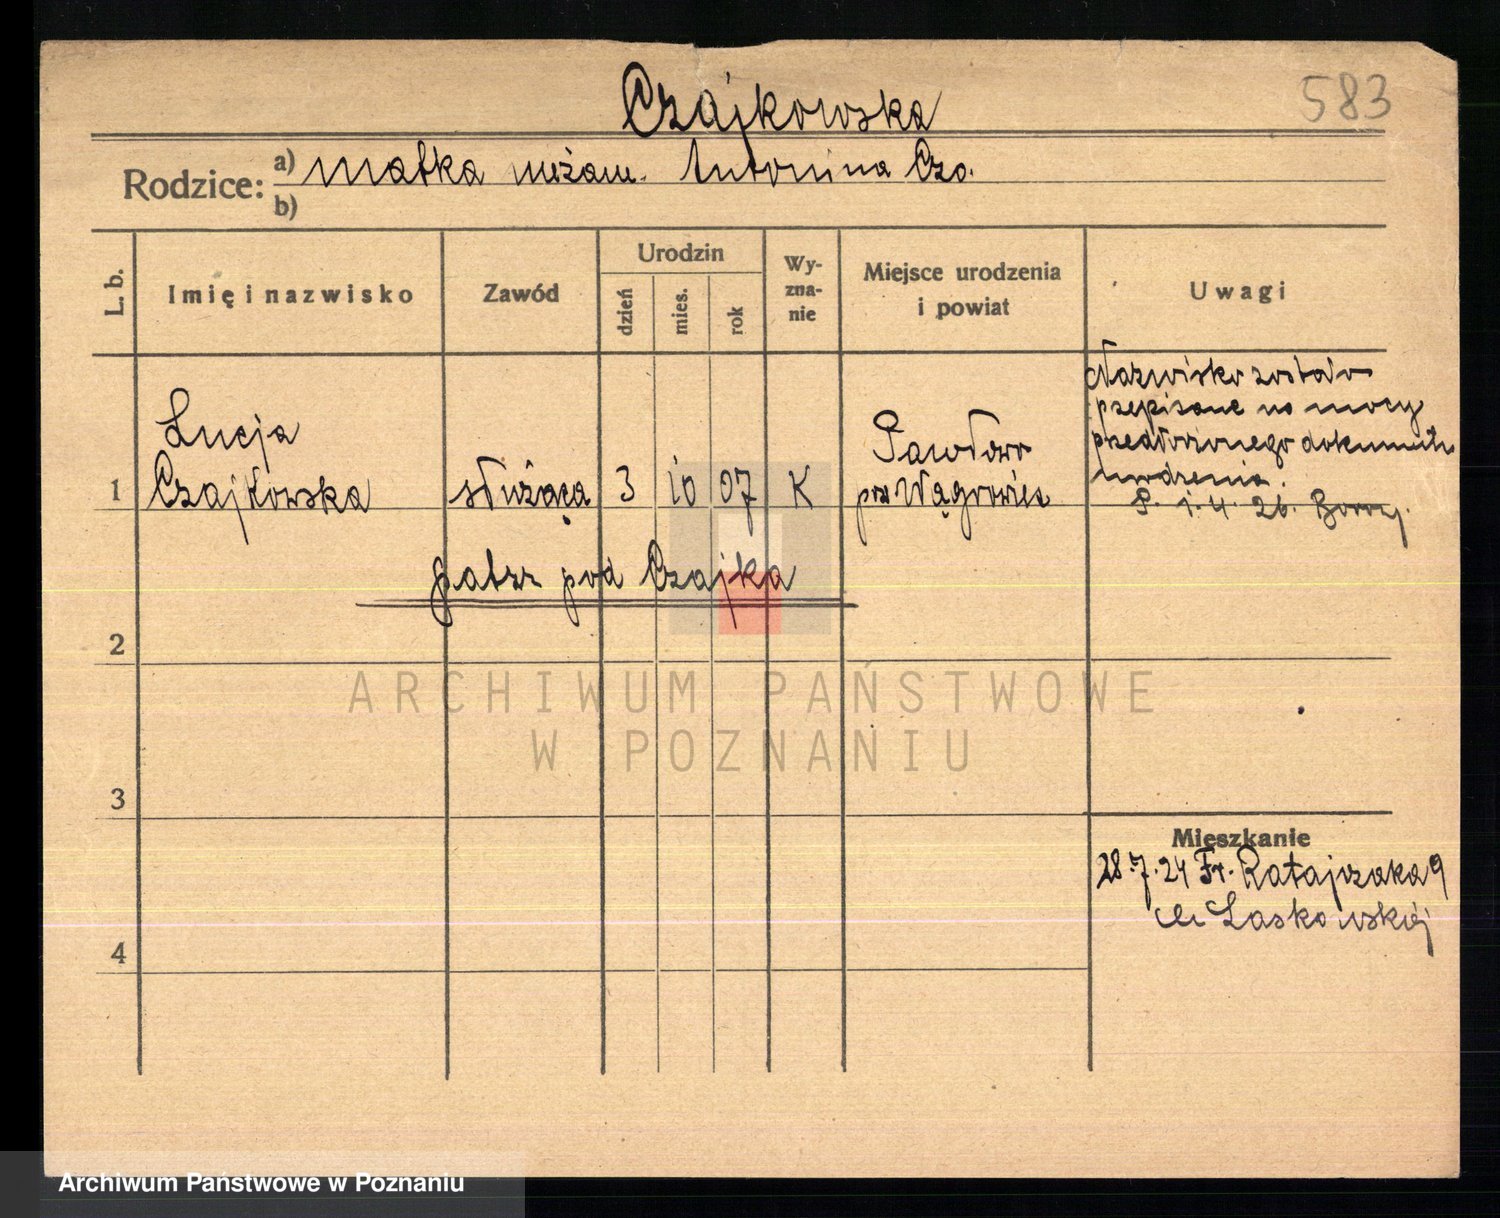 Czajkowska
583
Rodzice: a) matka niezam. Antonina Cza.
b)
L. b.
Imię i nazwisko
Zawód
Urodzin
dzień
mies.
rok
Wy-
zna-
nie
Miejsce urodzenia
i powiat
Uwagi
1
Łucja
Czajkowska
służąca
3
10
07
K
Pawłowo
pow Wągrowiec
Nazwisko zostało
przepisane na mocy
przedłożonego dokumentu
urodzenia.
P. 1. 4. 26.
patrz pod Czajka
2
3
4
Mieszkanie
28.7.24 Fr. Ratajczaka 9
u Laskowskiej
ARCHIWUM PAŃSTWOWE
W POZNANIU
Archiwum Państwowe w Poznaniu